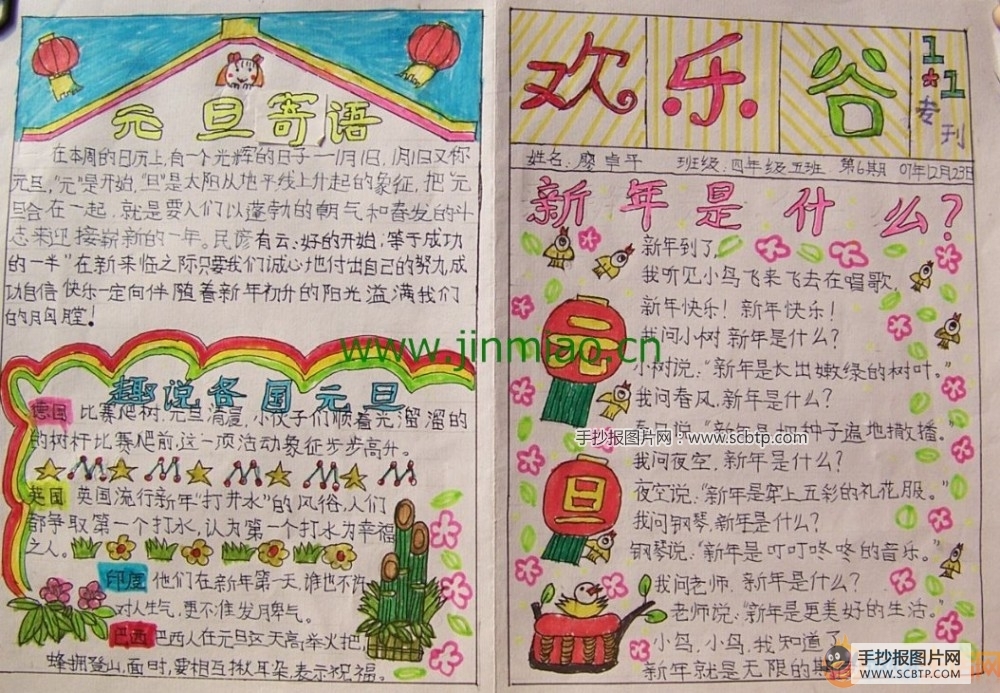 元旦寄语
在本周的日历上,有一个光辉的日子——1月1日,1月1日又称
元旦,"元"是开始,"旦"是太阳从地平线上升起的象征,把"元
旦会在一起,就是要人们以蓬勃的朝气和奋发的斗
志来迎接崭新的一年。民谚有云:好的开始,等于成功
的一半"在新来临之际只要我们诚心地付出自己的努力,成
功自信快乐一定向伴随着新年初升的阳光溢满我们
的胸膛!
趣说各国元旦
德国 比赛爬树:元旦清晨,小伙子们顺着光溜溜的
的树杆比赛爬前,这一项活动象征步步高升。
英国 英国流行新年"打井水"的风俗,人们
都争取第一个打水,认为第一个打水为幸福
之人。
印度 他们在新年第一天,谁也不许
对人生气,更不准发脾气。
巴西 巴西人在元旦这天高举火把,
蜂拥登山,面时,要相互揪耳朵,表示祝福。
欢乐谷
1★1
专刊
姓名:廖卓平 班级:四年级五班 第6期 07年12月23日
新年是什么?
新年到了,
我听见小鸟飞来飞去在唱歌,
新年快乐!新年快乐!
我问小树,新年是什么?
小树说:"新年是长出嫩绿的树叶。"
我问春风,新年是什么?
春风说:"新年是把种子遍地撒播。"
我问夜空,新年是什么?
夜空说:"新年是穿上五彩的礼花服。"
我问钢琴,新年是什么?
钢琴说:"新年是叮叮咚咚的音乐。"
我问老师,新年是什么?
老师说:"新年是更美好的生活。"
小鸟,小鸟,我知道了,
新年就是无限的
元
旦
www.jinmiao.cn
手抄报图片网:www.scbtp.com
手抄报图片网
WWW.SCBTP.COM